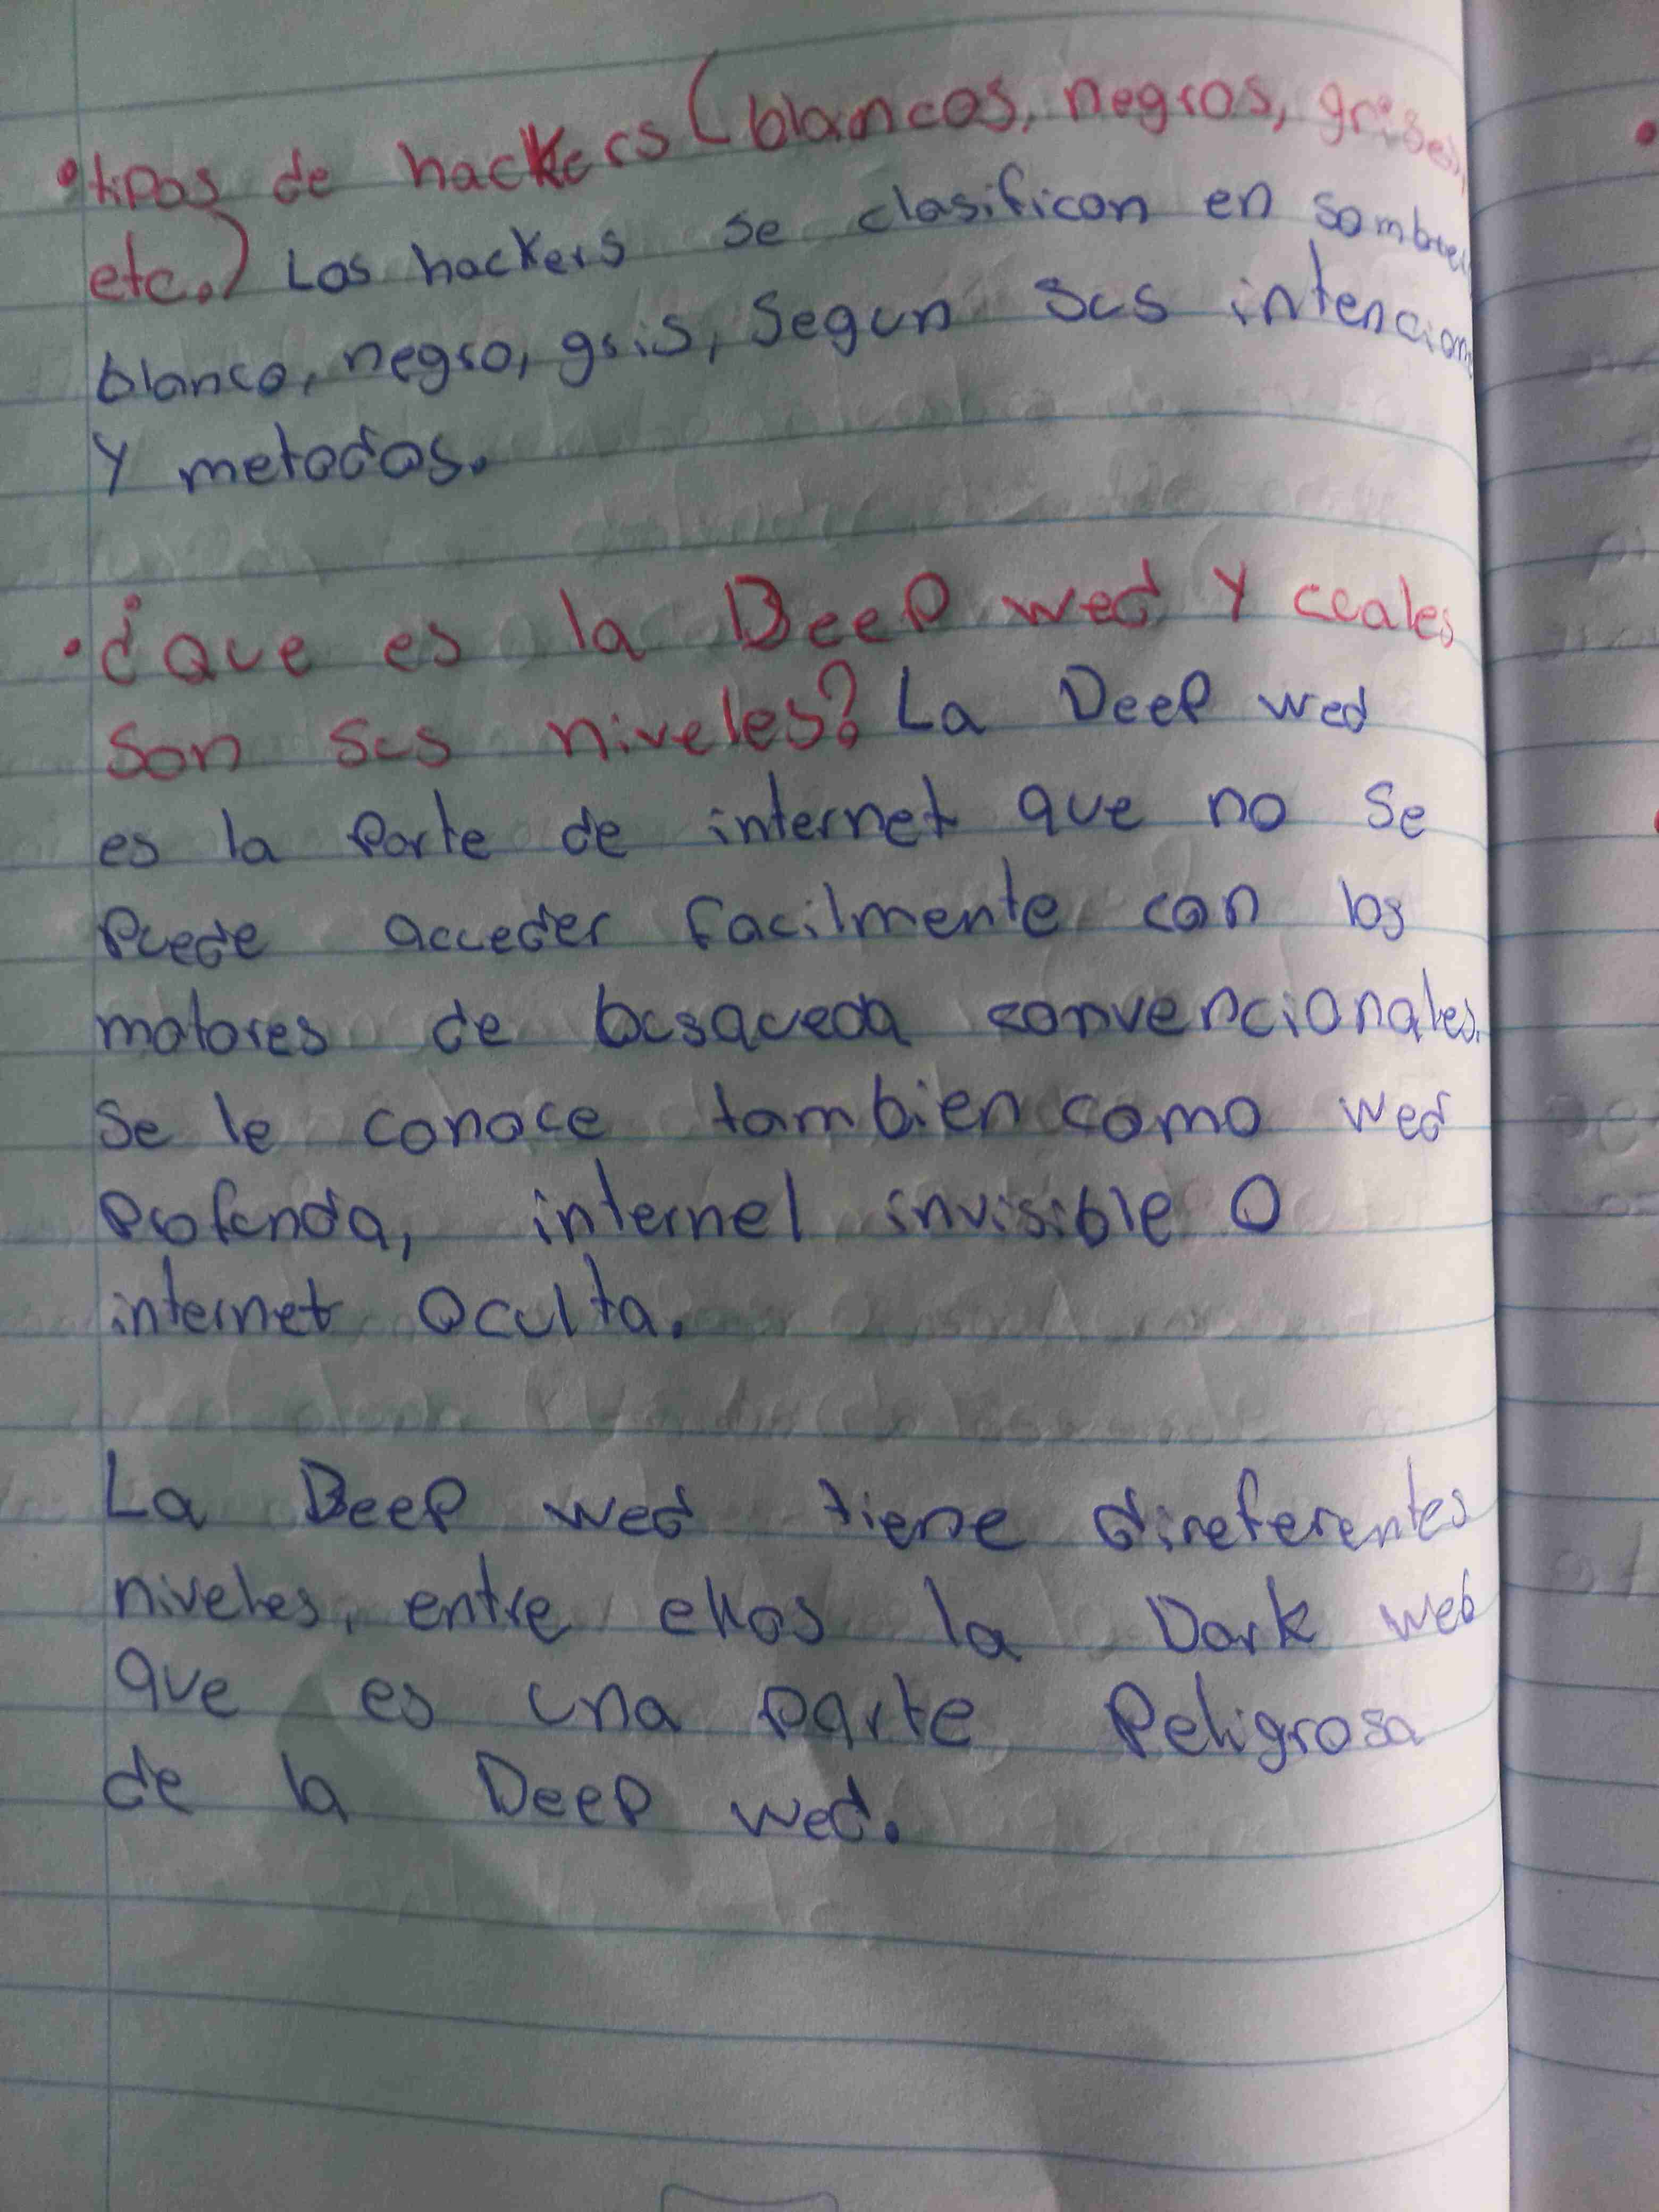 • tipos de hackers (blancos, negros, grises,
etc.) Los hackers se clasifican en
blanco, negro, gris, segun sus
y metodos.
• ¿que es la Deep wed y cuales
son sus niveles? La Deep wed
es la Parte de internet que no se
Puede acceder facilmente con los
motores de busqueda convencionales.
se le conoce tambien como wed
profunda, internet invisible o
internet oculta.
La Deep wed tiene direferentes
niveles, entre ellos la Dark web
que es una parte Peligrosa
de la Deep wed.